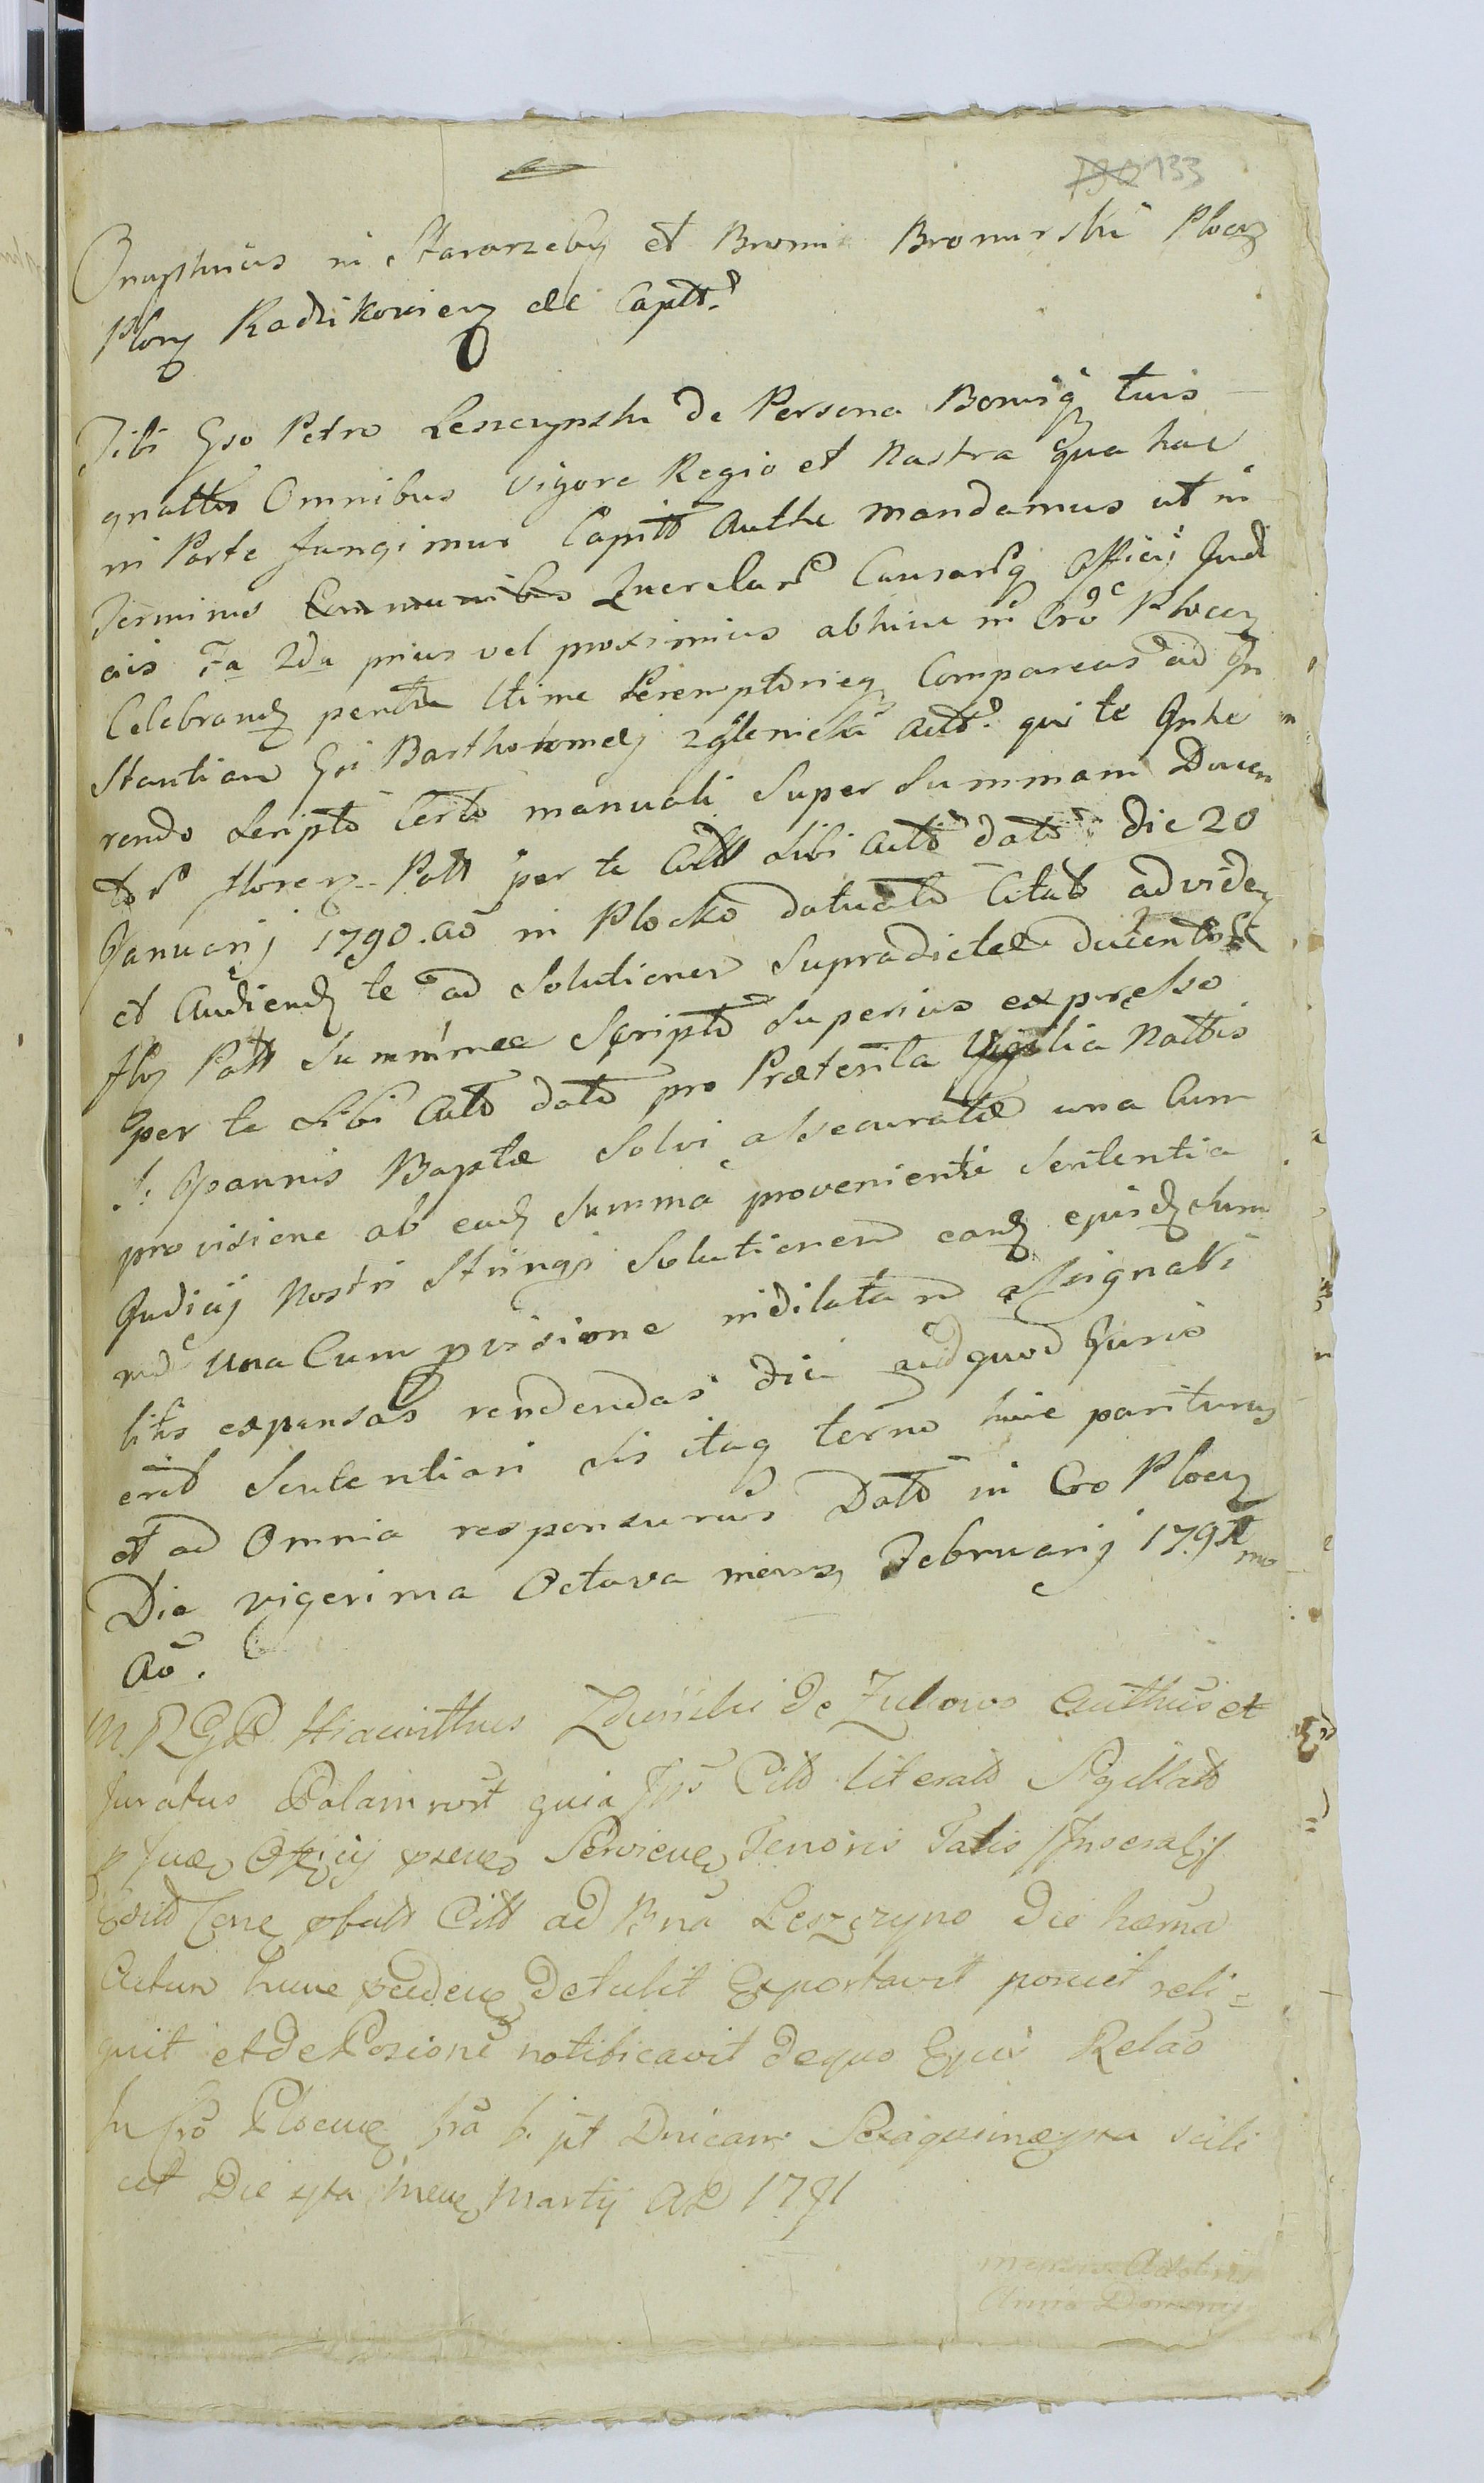 133
Onuphrius in Stararzeby et Bromi Bromirski Plocen
Plon Radzikowien etc Captt.
Tibi Gso Petro Leszczynski de Persona Bonisq tuis
gnattr Omnibus vigore Regio et Nostra qua hac
in Parte fungimur Capitt Authe mandamus ut in
Terminis Communibus Querelar Causarq Officij Judi
ais Fa 2da prius vel proximius abhinc in Cro Plocen
Celebrand pentr ltime Peremptorieq Compareas ad In
stantiam Gsi Bartholomei Zglenicki Actt. qui te Inhe
rendo Scripto Certo manuali Super Summam Ducen
tor floren Poll per te Citt Sibi Actt dato die 20
Januarij 1790. ao in Plocko datuato Citat ad viden
et Audiend te ad Solutionem Supradictae ducentor
flor Poll Summae Scripto Superius expresso
per te Sibi Actt dato pro Praeterita Vigilia Nattis
S: Joannis Baptae Solvi assecuratae una Cum
provisione ab ead Summa provenienti Sententia
Judicij Nostri Stringi Solutionem eand ejusd Sum
mae una Cum pvisione indilatam assignari
litis expensas rendendas dici aidquod Juris
erit Sententiari Sis itaq termo huic pariturus
et ad Omnia responsurus Datt in Cro Plocen
Die vigesima Octava mens Februarij 1791
mo
Ao.
M. R. G. P. Hiacinthus Zdunski de Zulowo Authus et
Juratus Palam rert quia Citt literatt Sigillatt
Officij Servien Tenoris Talis
Citt ad Bna Leszczyno Die herna
Actum hunc Detulit Exportavit posuit reli=
quit et de Posione notificavit de quo Ejus Relao
In Cro Plocen fra 6. pt Dnicam Sexagesimae scili
cet Die 4ta Mens Martij AD 1791
Anno Domini